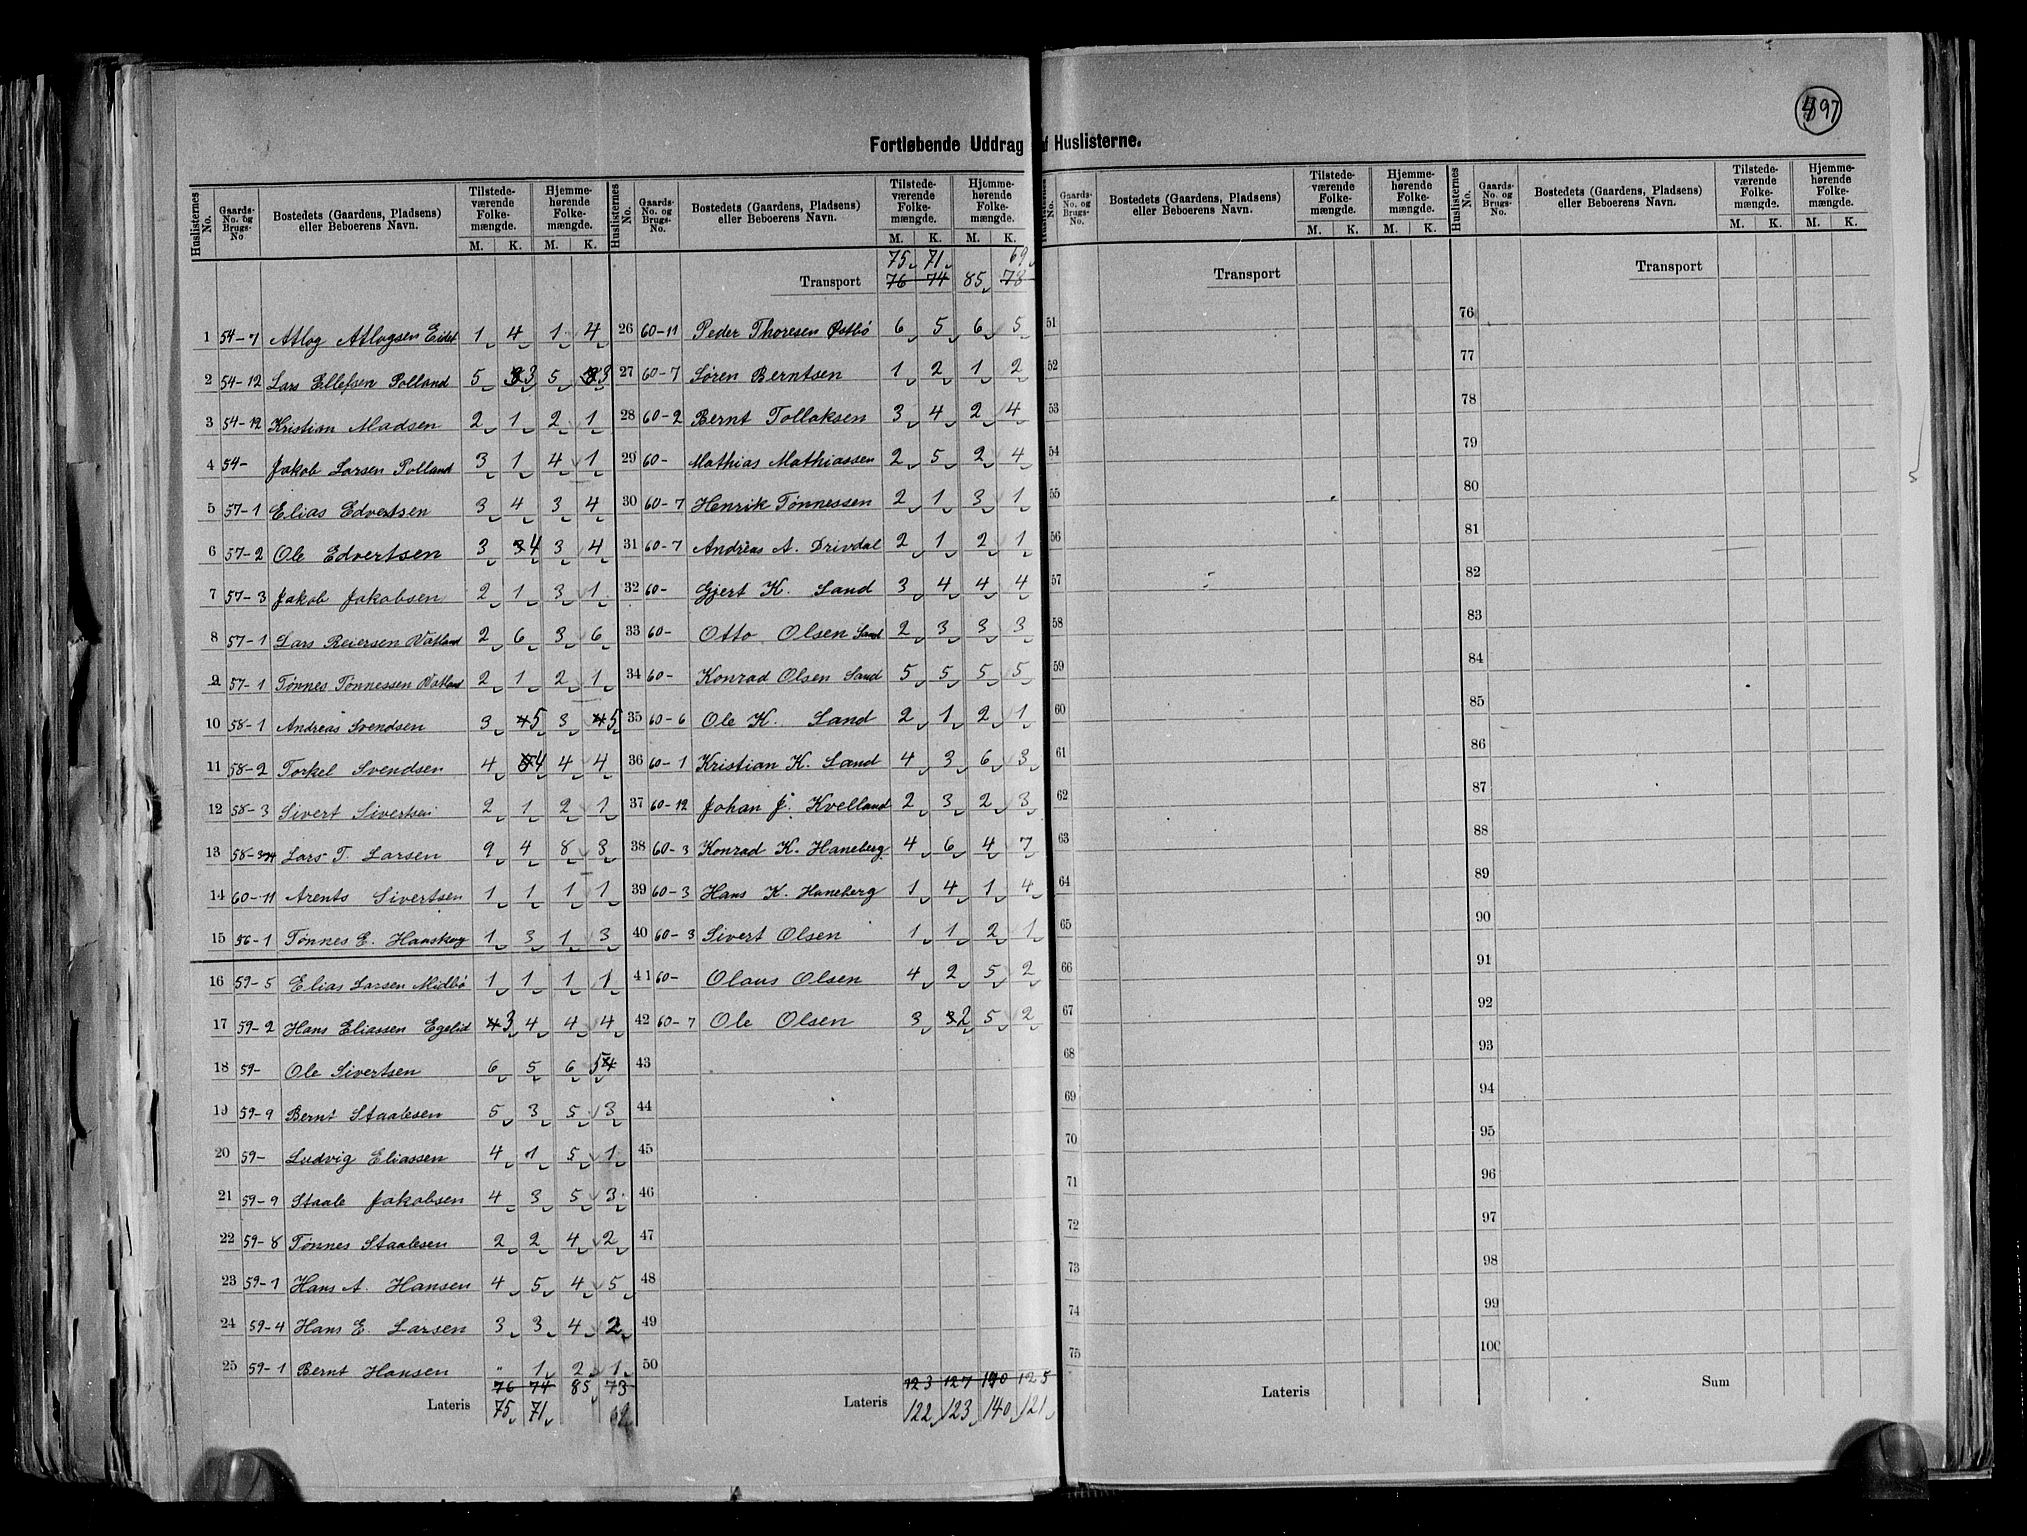 497
Fortløbende Uddrag af Huslisterne.
Huslisternes No. Gaards-No. og Brugs-No Bostedets (Gaardens, Pladsens) eller Beboerens Navn. Tilstede-værende Folke-mængde. M. K. Hjemme-hørende Folke-mængde. M. K.
1 54-7 Atlog Atlogsen Eidet 1 4 1 4
2 54-12 Lars Ellefsen Polland 5 3 5 3
3 54-12 Kristian Madsen 2 1 2 1
4 54- Jakob Larsen Polland 3 1 4 1
5 57-1 Elias Edvertsen 3 4 3 4
6 57-2 Ole Edvertsen 3 34 3 4
7 57-3 Jakob Jakobsen 2 1 3 1
8 57-1 Lars Reiersen Vatland 2 6 3 6
9 57-1 Tønnes Tønnessen Vatland 2 1 2 1
10 58-1 Andreas Svendsen 3 45 3 45
11 58-2 Torkel Svendsen 4 4 4 4
12 58-3 Sivert Sivertsen 2 1 2 1
13 58- Lars T. Larsen 9 4 8 3
14 60-11 Arents Sivertsen 1 1 1 1
15 56-1 Tønnes E. Haaskog 1 3 1 3
16 59-5 Elias Larsen Midbø 1 1 1 1
17 59-2 Hans Eliassen Egelid 43 4 4 4
18 59- Ole Sivertsen 6 5 6 54
19 59-9 Bernt Staalesen 5 3 5 3
20 59- Ludvig Eliassen 4 1 5 1
21 59-9 Staale Jakobsen 4 3 5 3
22 59-8 Tønnes Staalesen 2 2 4 2
23 59-1 Hans A. Hansen 4 5 4 5
24 59-4 Hans E. Larsen 3 3 4 2
25 59-1 Bernt Hansen " 1 2 1
76 74 85 73
Lateris 75 71 69
Huslisternes No. Gaards-No. og Brugs-No. Bostedets (Gaardens, Pladsens) eller Beboerens Navn. Tilstede-værende Folke-mængde. M. K. Hjemme-hørende Folke-mængde. M. K.
75 71 69
Transport 76 74 85 73
26 60-11 Peder Thoresen Østbø 6 5 6 5
27 60-7 Søren Berntsen 1 2 1 2
28 60-2 Bernt Tollaksen 3 4 2 4
29 60- Mathias Mathiassen 2 5 2 4
30 60-7 Henrik Tønnessen 2 1 3 1
31 60-7 Andreas A. Drivdal 2 1 2 1
32 60- Gjert K. Sand 3 4 4 4
33 60- Otto Olsen Sand 2 3 3 3
34 60- Konrad Olsen Sand 5 5 5 5
35 60-6 Ole K. Sand 2 1 2 1
36 60-1 Kristian K. Sand 4 3 6 3
37 60-12 Johan J. Kvelland 2 3 2 3
38 60-3 Konrad K. Haneberg 4 6 4 7
39 60-3 Hans K. Haneberg 1 4 1 4
40 60-3 Sivert Olsen 1 1 2 1
41 60- Olaus Olsen 4 2 5 2
42 60-7 Ole Olsen 3 32 5 2
43
44
45
46
47
48
49
50
123 127 140 125
Lateris 122 123 140 121
Huslisternes No. Gaards-No. og Brugs-No. Bostedets (Gaardens, Pladsens) eller Beboerens Navn. Tilstede-værende Folke-mængde. M. K. Hjemme-hørende Folke-mængde. M. K.
Transport
51
52
53
54
55
56
57
58
59
60
61
62
63
64
65
66
67
68
69
70
71
72
73
74
75
Lateris
Huslisternes No. Gaards-No. og Brugs-No. Bostedets (Gaardens, Pladsens) eller Beboerens Navn. Tilstede-værende Folke-mængde. M. K. Hjemme-hørende Folke-mængde. M. K.
Transport
76
77
78
79
80
81
82
83
84
85
86
87
88
89
90
91
92
93
94
95
96
97
98
99
100
Sum